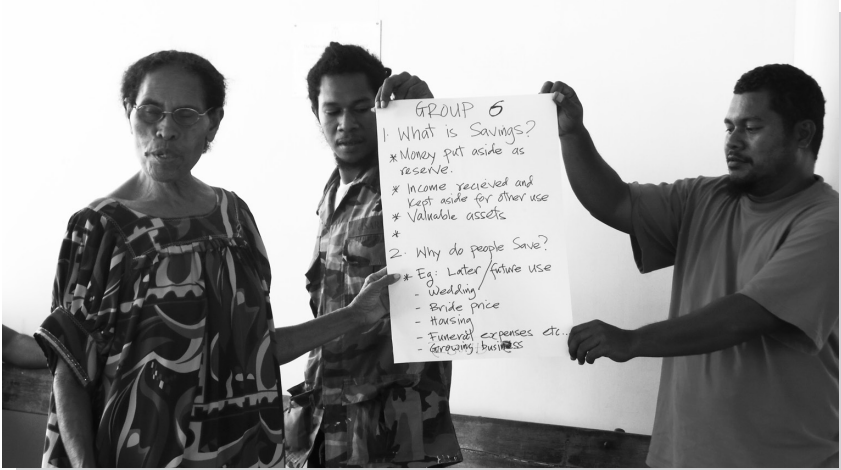 GROUP 6
1. What is Savings?
* Money put aside as
reserve.
* Income recieved and
kept aside for other use
* Valuable assets
*
2. Why do people Save?
* Eg: Later/future use
- Wedding
- Bride price
- Housing
- Funeral expenses etc...
- Growing business